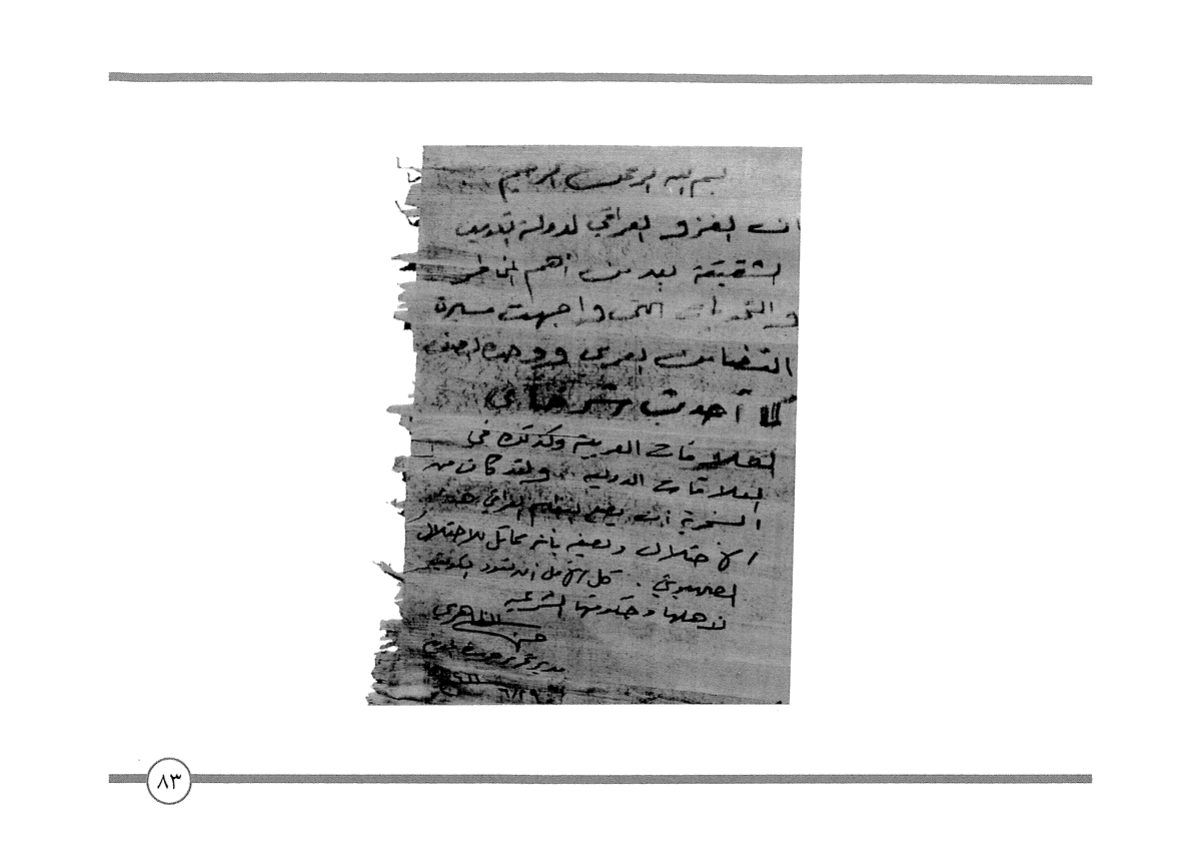 بسم الله الرحمن الرحيم
ان الغزو العراقي لدولة الكويت
الشقيقة يعد من أهم المخاطر
والتحديات التى واجهت مسيرة
التضامن العربى ووحدة الصف
لما أحدث شرخا فى
العلاقات العربية وكذلك في
العلاقات الدولية. ولقد كان من
السخرية أن يصف النظام العراقي هذا
الاحتلال وتصفيه بأنه مماثل للاحتلال
الصهيوني. كل الأمل أن تعود الكويت
لأهلها وحكومتها الشرعية
حسن
مدير تحرير جريدة
٦/٢٩
٨٣